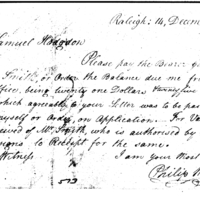 Raleigh: 14, Decem
Samuel Hodgdon
Please pay the Bearer
Smith, or Order the Balance due me from
Office, being twenty one Dollars
which agreeably to your Letter was to be pa
myself or Order, on Application. For Va
eived of Mr. Smith, who is authorised by
igns to Receipt for the same.
Witness. I am Your Most
Philip